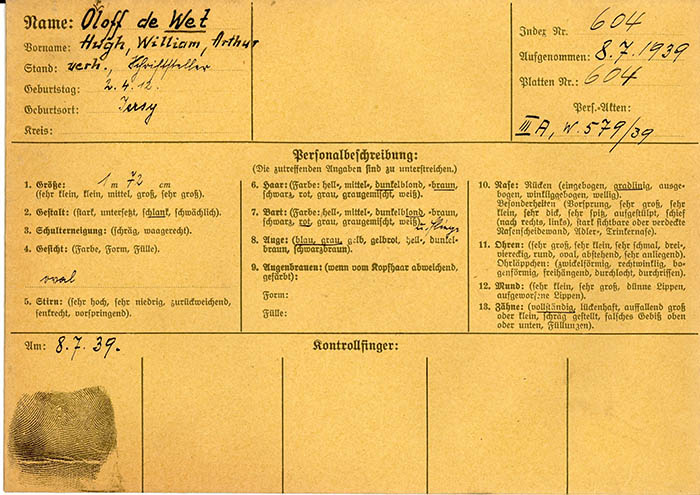 Name: Oloff de Wet
Vorname: Hugh, William, Arthur
Stand: verh., Schriftsteller
Geburtstag: 2.4.12.
Geburtsort: Jersy
Kreis:
Index Nr. 604
Aufgenommen: 8.7.1939
Platten Nr.: 604
Pers.-Akten:
III A, W. 579/39
Personalbeschreibung:
(Die zutreffenden Angaben sind zu unterstreichen.)
1. Größe: 1 m 72 cm
(sehr klein, klein, mittel, groß, sehr groß).
2. Gestalt: (stark, untersetzt, schlank, schwächlich).
3. Schulterneigung: (schräg, waagerecht).
4. Gesicht: (Farbe, Form, Fülle).
oval
5. Stirn: (sehr hoch, sehr niedrig, zurückweichend,
senkrecht, vorspringend).
6. Haar: (Farbe: hell-, mittel-, dunkelblond, -braun,
schwarz, rot, grau, graugemischt, weiß).
7. Bart: (Farbe: hell-, mittel-, dunkelblond, -braun,
schwarz, rot, grau, graugemischt, weiß).
8. Auge: (blau, grau, gelb, gelbrot, hell-, dunkel-
braun, schwarzbraun).
9. Augenbrauen: (wenn vom Kopfhaar abweichend,
gefärbt):
Form:
Fülle:
10. Nase: Rücken (eingebogen, gradlinig, ausge-
bogen, winkliggebogen, wellig).
Besonderheiten (Vorsprung, sehr groß, sehr
klein, sehr dick, sehr spitz, aufgestülpt, schief
(nach rechts, links), stark sichtbare oder verdeckte
Nasenscheidewand, Adler-, Trinkernase).
11. Ohren: (sehr groß, sehr klein, sehr schmal, drei-,
viereckig, rund, oval, abstehend, sehr anliegend).
Ohrläppchen: (zwickelförmig, rechtwinklig, bo-
genförmig, freihängend, durchlocht, durchrissen).
12. Mund: (sehr klein, sehr groß, dünne Lippen,
aufgeworfene Lippen).
13. Zähne: (vollständig, lückenhaft, auffallend groß
oder klein, schräg gestellt, falsches Gebiß oben
oder unten, Füllungen).
Am: 8.7.39.
Kontrollfinger: